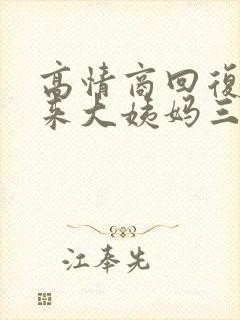 高情商回復
来大姨妈三
江奉先